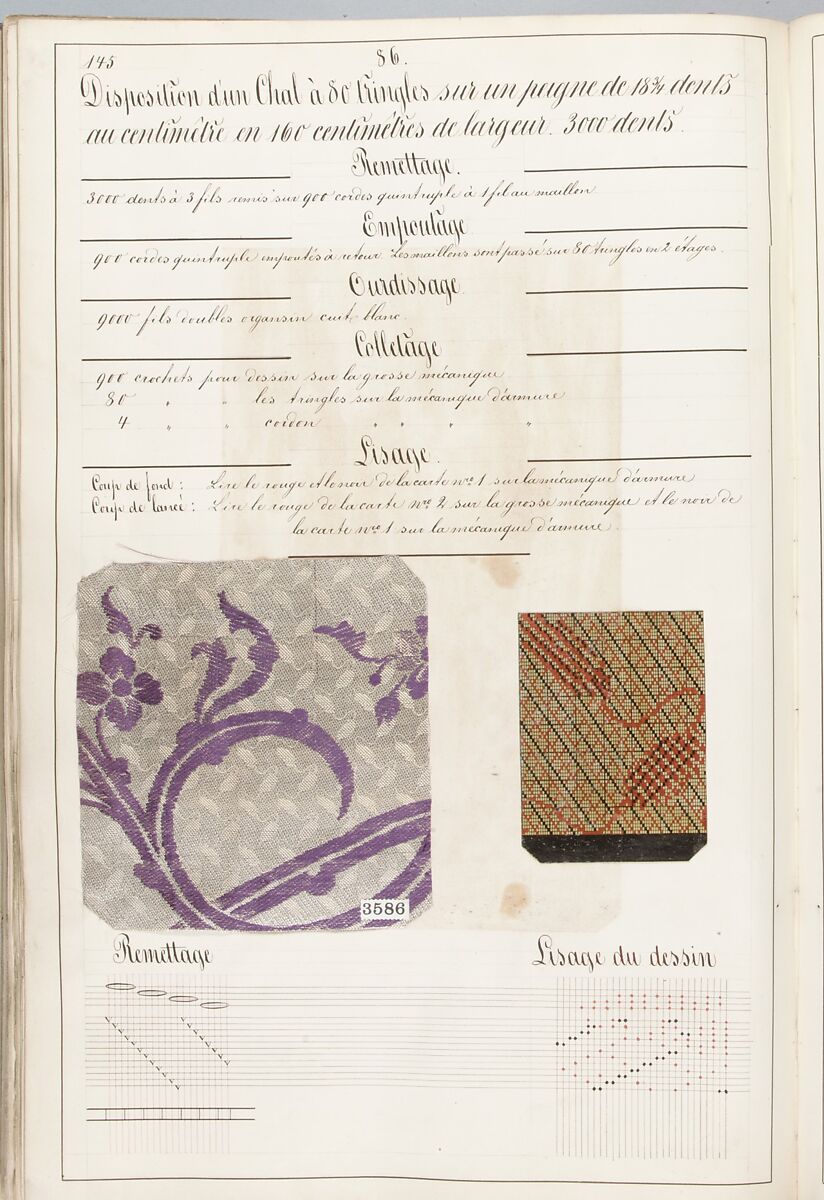 145
86.
Disposition d'un Chal à 80 tringles sur un peigne de 18¾ dents
au centimètre en 160 centimètres de largeur. 3000 dents.
Remettage.
3000 dents à 3 fils remis sur 900 cordes quintruple à 1 fil au maillon
Empoutage
900 cordes quintruple empoutés à retour. Les maillons sont passé sur 80 tringles en 2 étages.
Ourdissage
9000 fils doubles organsin cuit blanc.
Colletage
900 crochets pour dessin sur la grosse mécanique
80 " " les tringles sur la mécanique d'armure
4 " " cordon " " " "
Lisage.
Coup de fond : Lire le rouge et le noir de la carte nro 1 sur la mécanique d'armure
Coup de lancé : Lire le rouge de la carte nro 2 sur la grosse mécanique et le noir de
la carte nro 1 sur la mécanique d'armure.
3586
Remettage
Lisage du dessin